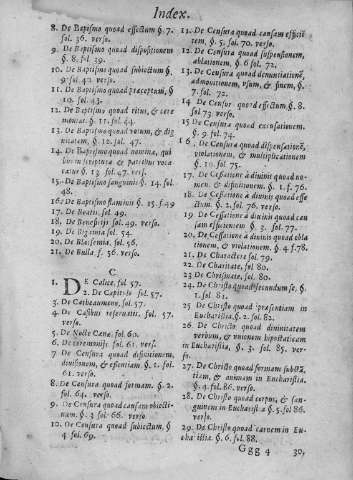 Index.
8. De Baptismo quoad effectum §. 7.
fol. 36. verso.
9. De Baptismo quoad dispositionem
§. 8. fol. 39.
10. De Baptismo quoad subiectum §.
9. fol. 42.
11. De Baptismo quoad præceptum, §
10. fol. 43.
12. De Baptismo quoad ritus, & cere
moniat. §. 11. fol. 44.
13. De Baptismo quoad votum, & dig
nitatem, §. 12. fol. 47.
14. De Baptismo quoad nomina, qui
bus in scriptura & patribus voca
tur §. 13 fol. 47. verso.
15. De Baptismo sanguinis §. 14. fol.
48.
16. De Baptismo flaminis §. 15. f. 49
17. De Beatis. fol. 49.
18. De Beneficijs fol. 49. verso.
19. De Bigamia fol. 54.
20. De Blasfemia. fol. 56.
21. De Bulla f. 56. verso.
C.
1. DE Calice. fol. 57.
2. De Capitulo fol. 57.
3. De Cathecumeno, fol. 57.
4. De Casibus reseruatis. fol. 57.
verso.
5. De Nocte Cænæ. fol. 60.
6. De ceremonijs fol. 61. vers.
7. De Censura quoad difinitionem,
diuisionem, & essentiam §. 2. fol.
61. verso.
8. De Censura quoad formam. §. 2.
fol. 64. verso.
9. De Censura quoad causam obiecti-
nam. §. 3 fol. 66. verso.
10. De Censura quoad subiectum, §
4 fol. 69.
11. De Censura quoad causam efficië
tem. §. 5. fol. 70. verso.
12. De Censura quoad suspensionem,
ablationem, §. 6 fol. 72.
13. De Censura quoad denuntiationẽ,
admonitionem, vsum, & finem, §.
7. fol. 72.
14 De Censur quod effectum §. 8.
fol 73 verso.
15 De Censura quoad excusationem.
§. 9. fol. 74.
16. De Censura quoad dispensationẽ,
violationem, & multiplicationem
§. 10. fol. 75.
17. De Cessatione à diuinis quoad no-
men, & difinitionem. §. 1. f. 76.
18. De Cessatione à diuinis quoad effe
ctum. §. 2. fol. 76. verso.
19 De Cessatione à diuinis quoad cau
sam efficientem §. 3. fol. 77.
20 De Cessatione à diuinis quoad obla
tionem, & violationem. §. 4 f. 78.
21. De Charactere fol. 79.
22. De Charitate, fol. 80.
23 De Chrismate. fol. 80.
24. De Christo quoad secundum se. §.
1. fol. 81.
25 De Christo quoad præsentiam in
Eucharistia, §. 2. fol. 82.
26 De Christo quoad diuinitatem
verbum, & vnionem hipostaticam
in Eucharistia, §. 3. fol. 85. ver-
so.
27. De Christo quoad formam substã,
tiam, & animam in Eucharistia,
§. 4. fol. 86. verso.
28. De Christo quoad corpus, & san-
guinem in Eucharistia §. 5. fol 86.
verso.
29. De Christo quoad carnem in Eu-
charistia §. 6. fol. 88.
Ggg 4 30.